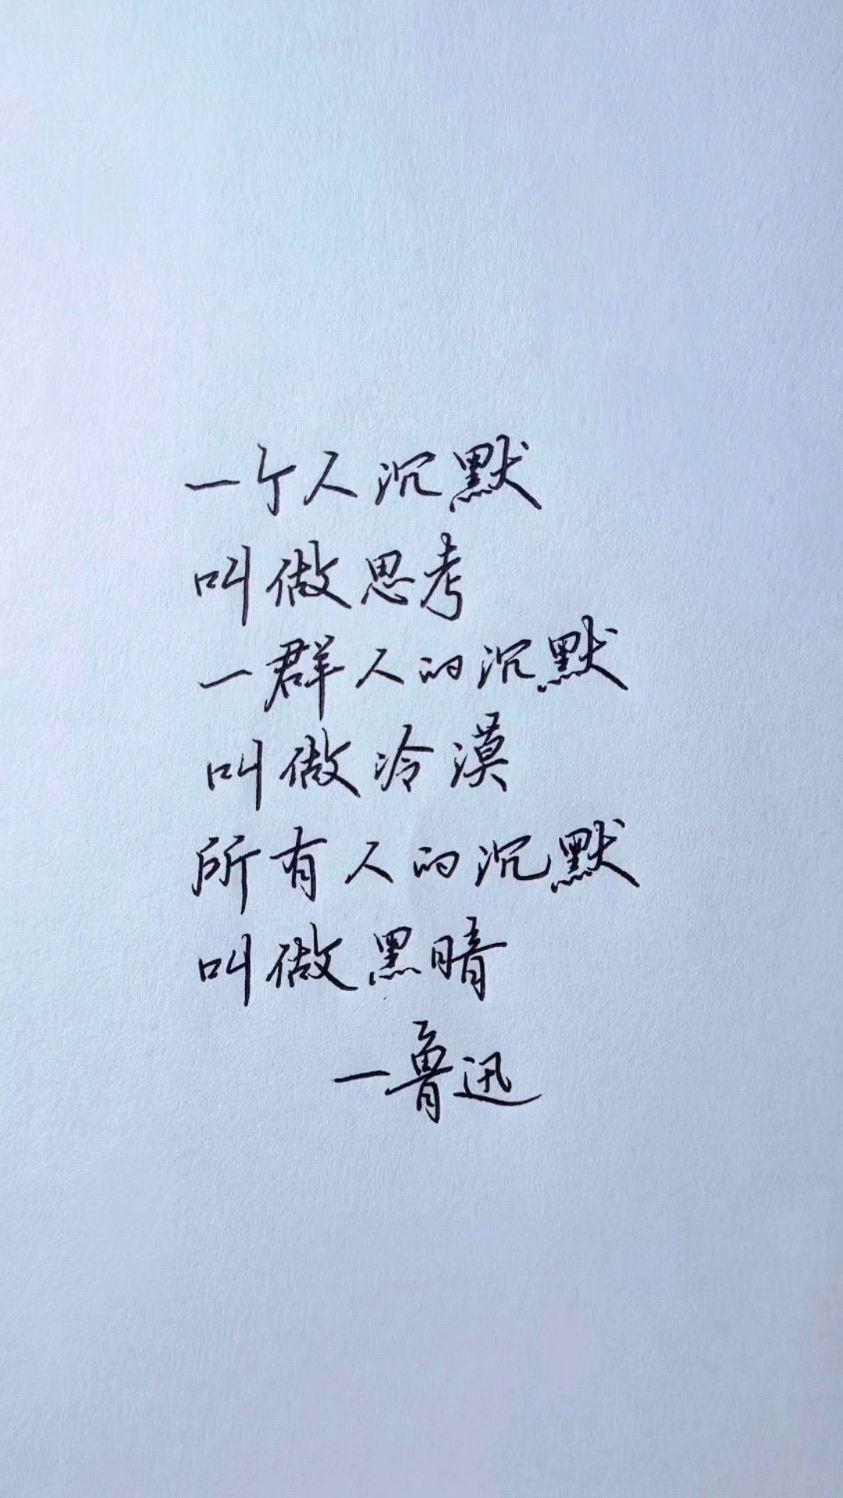 一个人沉默
叫做思考
一群人的沉默
叫做冷漠
所有人的沉默
叫做黑暗
—鲁迅